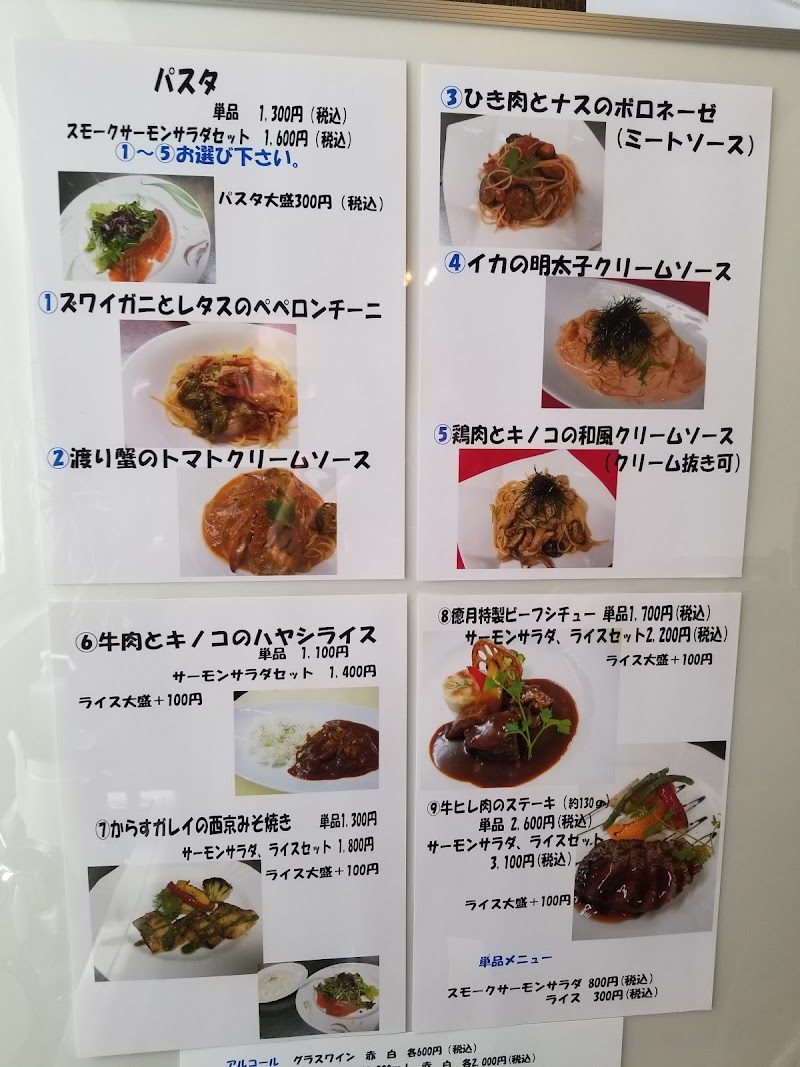 パスタ
単品 1,300円(税込)
スモークサーモンサラダセット 1,600円(税込)
①~⑤お選び下さい。
パスタ大盛300円(税込)
①ズワイガニとレタスのペペロンチーニ
②渡り蟹のトマトクリームソース
③ひき肉とナスのボロネーゼ
(ミートソース)
④イカの明太子クリームソース
⑤鶏肉とキノコの和風クリームソース
(クリーム抜き可)
⑥牛肉とキノコのハヤシライス
単品 1,100円
サーモンサラダセット 1,400円
ライス大盛+100円
⑦からすガレイの西京みそ焼き 単品1,300円
サーモンサラダ、ライスセット 1,800円
ライス大盛+100円
⑧癒月特製ビーフシチュー 単品1,700円(税込)
サーモンサラダ、ライスセット2,200円(税込)
ライス大盛+100円
⑨牛ヒレ肉のステーキ(約130g)
単品 2,600円(税込)
サーモンサラダ、ライスセット
3,100円(税込)
ライス大盛+100円
単品メニュー
スモークサーモンサラダ 800円(税込)
ライス 300円(税込)
アルコール グラスワイン 赤 白 各600円(税込)
赤 白 各2,000円(税込)